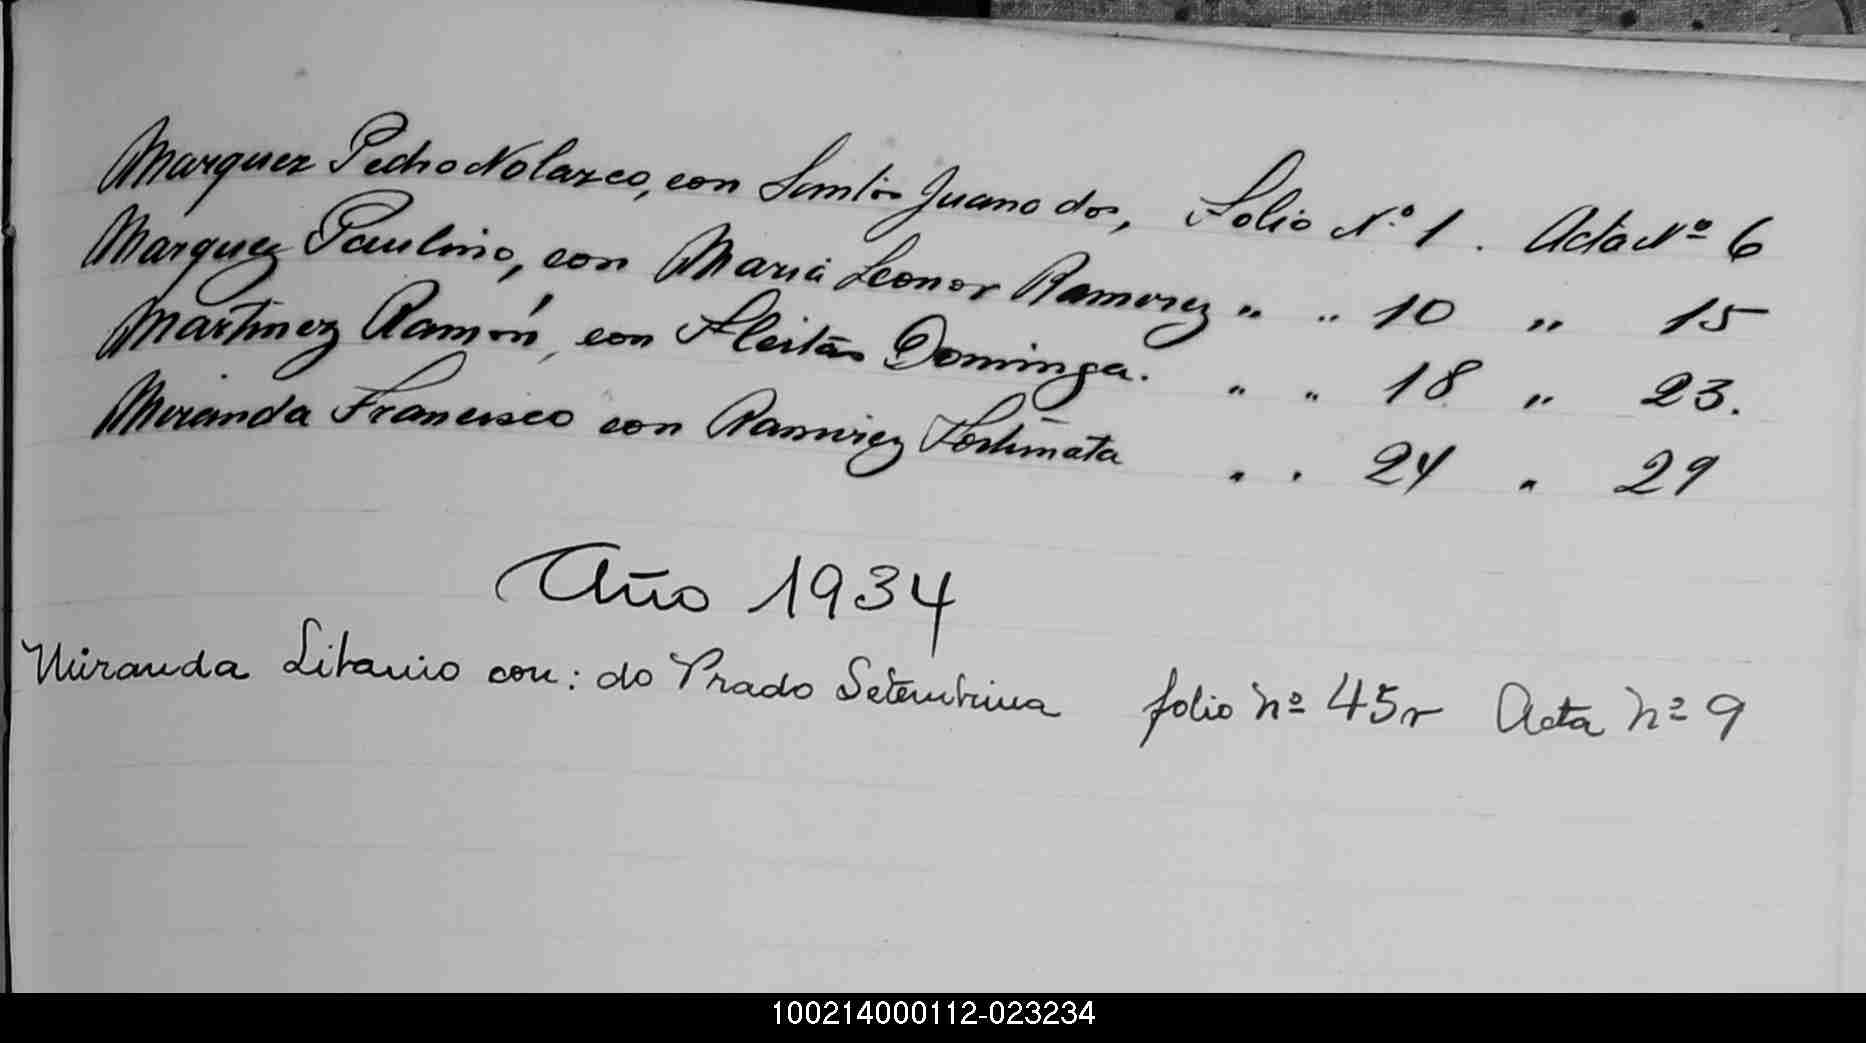 Marquez Pedro Nolazco, con Santos Juana dos, Folio Nº 1. Acta Nº 6
Marquez Paulino, con Maria Leonor Ramirez " " 10 " 15
Martinez Ramón, con Fleitas Dominga. " " 18 " 23.
Miranda Francisco con Ramirez Fortunata " " 24 " 29
Año 1934
Miranda Litanio con: do Prado Setembrina folio nº 45r Acta nº 9
100214000112-023234